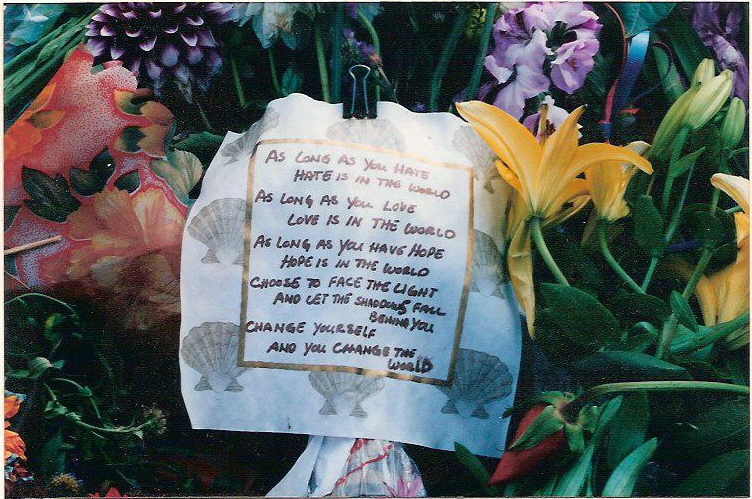 AS LONG AS YOU HATE
HATE IS IN THE WORLD
AS LONG AS YOU LOVE
LOVE IS IN THE WORLD
AS LONG AS YOU HAVE HOPE
HOPE IS IN THE WORLD
CHOOSE TO FACE THE LIGHT
AND LET THE SHADOWS FALL
BEHIND YOU
CHANGE YOURSELF
AND YOU CHANGE THE
WORLD